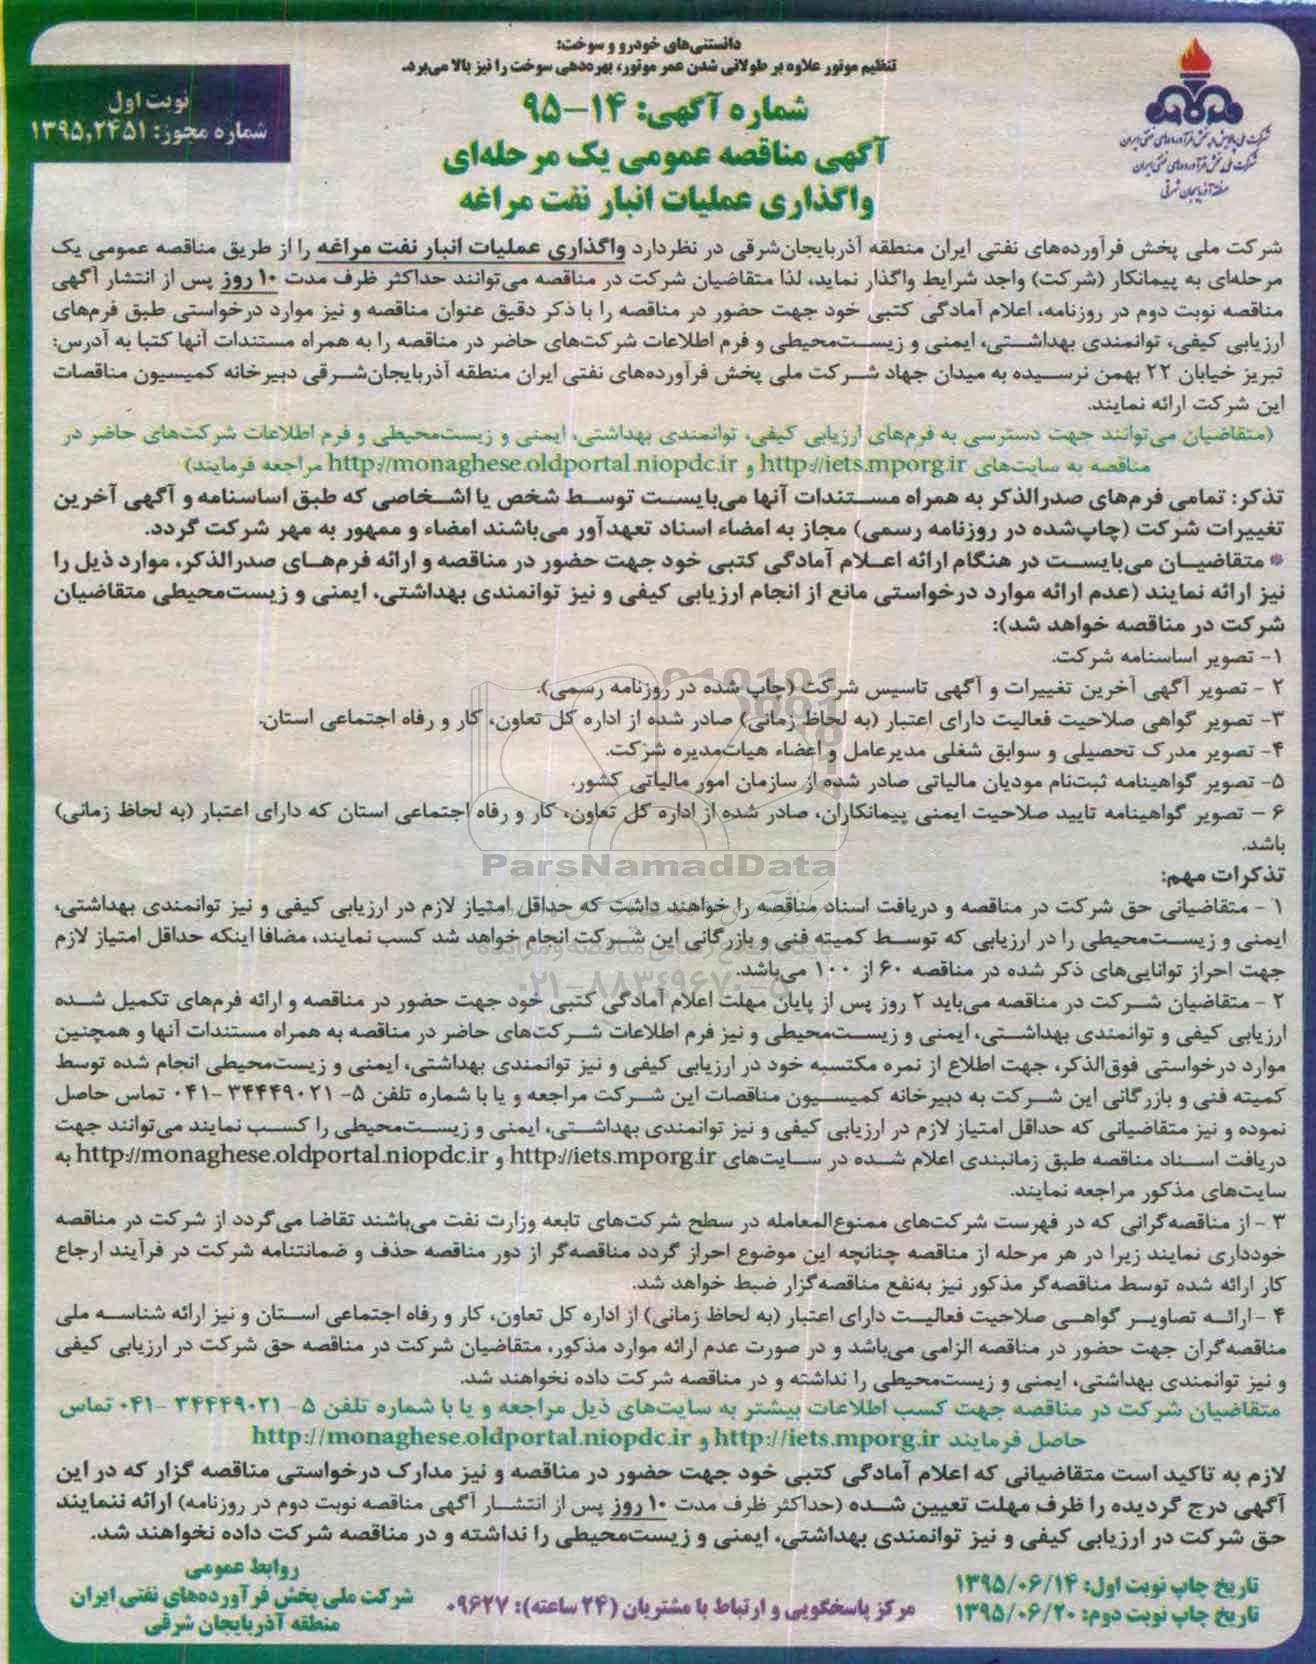 دانستنی‌های خودرو و سوخت:
تنظیم موتور علاوه بر طولانی شدن عمر موتور، بهره‌دهی سوخت را نیز بالا می‌برد.
نوبت اول
شماره مجوز: ۱۳۹۵,۲۴۵۱
شماره آگهی: ۱۴-۹۵
آگهی مناقصه عمومی یک مرحله‌ای
واگذاری عملیات انبار نفت مراغه
شرکت ملی پالایش و پخش فرآورده‌های نفتی ایران
شرکت ملی پخش فرآورده‌های نفتی ایران
منطقه آذربایجان شرقی
شرکت ملی پخش فرآورده‌های نفتی ایران منطقه آذربایجان‌شرقی در نظردارد واگذاری عملیات انبار نفت مراغه را از طریق مناقصه عمومی یک
مرحله‌ای به پیمانکار (شرکت) واجد شرایط واگذار نماید، لذا متقاضیان شرکت در مناقصه می‌توانند حداکثر ظرف مدت ۱۰ روز پس از انتشار آگهی
مناقصه نوبت دوم در روزنامه، اعلام آمادگی کتبی خود جهت حضور در مناقصه را با ذکر دقیق عنوان مناقصه و نیز موارد درخواستی طبق فرم‌های
ارزیابی کیفی، توانمندی بهداشتی، ایمنی و زیست‌محیطی و فرم اطلاعات شرکت‌های حاضر در مناقصه را به همراه مستندات آنها کتبا به آدرس:
تبریز خیابان ۲۲ بهمن نرسیده به میدان جهاد شرکت ملی پخش فرآورده‌های نفتی ایران منطقه آذربایجان‌شرقی دبیرخانه کمیسیون مناقصات
این شرکت ارائه نمایند.
(متقاضیان می‌توانند جهت دسترسی به فرم‌های ارزیابی کیفی، توانمندی بهداشتی، ایمنی و زیست‌محیطی و فرم اطلاعات شرکت‌های حاضر در
مناقصه به سایت‌های http://iets.mporg.ir و http://monaghese.oldportal.niopdc.ir مراجعه فرمایند)
تذکر: تمامی فرم‌های صدرالذکر به همراه مستندات آنها می‌بایست توسط شخص یا اشخاصی که طبق اساسنامه و آگهی آخرین
تغییرات شرکت (چاپ‌شده در روزنامه رسمی) مجاز به امضاء اسناد تعهدآور می‌باشند امضاء و ممهور به مهر شرکت گردد.
* متقاضیان می‌بایست در هنگام ارائه اعلام آمادگی کتبی خود جهت حضور در مناقصه و ارائه فرم‌های صدرالذکر، موارد ذیل را
نیز ارائه نمایند (عدم ارائه موارد درخواستی مانع از انجام ارزیابی کیفی و نیز توانمندی بهداشتی، ایمنی و زیست‌محیطی متقاضیان
شرکت در مناقصه خواهد شد):
۱- تصویر اساسنامه شرکت.
۲ - تصویر آگهی آخرین تغییرات و آگهی تاسیس شرکت (چاپ شده در روزنامه رسمی).
۳- تصویر گواهی صلاحیت فعالیت دارای اعتبار (به لحاظ زمانی) صادر شده از اداره کل تعاون، کار و رفاه اجتماعی استان.
۴- تصویر مدرک تحصیلی و سوابق شغلی مدیرعامل و اعضاء هیات‌مدیره شرکت.
۵- تصویر گواهینامه ثبت‌نام مودیان مالیاتی صادر شده از سازمان امور مالیاتی کشور.
۶ - تصویر گواهینامه تایید صلاحیت ایمنی پیمانکاران، صادر شده از اداره کل تعاون، کار و رفاه اجتماعی استان که دارای اعتبار (به لحاظ زمانی)
باشد.
ParsNamadData
تذکرات مهم:
۱ - متقاضیانی حق شرکت در مناقصه و دریافت اسناد مناقصه را خواهند داشت که حداقل امتیاز لازم در ارزیابی کیفی و نیز توانمندی بهداشتی،
ایمنی و زیست‌محیطی را در ارزیابی که توسط کمیته فنی و بازرگانی این شرکت انجام خواهد شد کسب نمایند، مضافا اینکه حداقل امتیاز لازم
جهت احراز توانایی‌های ذکر شده در مناقصه ۶۰ از ۱۰۰ می‌باشد.
۰۲۱-۸۸۳۴۹۶۷۰-۵
۲ - متقاضیان شرکت در مناقصه می‌باید ۲ روز پس از پایان مهلت اعلام آمادگی کتبی خود جهت حضور در مناقصه و ارائه فرم‌های تکمیل شده
ارزیابی کیفی و توانمندی بهداشتی، ایمنی و زیست‌محیطی و نیز فرم اطلاعات شرکت‌های حاضر در مناقصه به همراه مستندات آنها و همچنین
موارد درخواستی فوق‌الذکر، جهت اطلاع از نمره مکتسبه خود در ارزیابی کیفی و نیز توانمندی بهداشتی، ایمنی و زیست‌محیطی انجام شده توسط
کمیته فنی و بازرگانی این شرکت به دبیرخانه کمیسیون مناقصات این شرکت مراجعه و یا با شماره تلفن ۵- ۳۴۴۴۹۰۲۱ -۰۴۱ تماس حاصل
نموده و نیز متقاضیانی که حداقل امتیاز لازم در ارزیابی کیفی و نیز توانمندی بهداشتی، ایمنی و زیست‌محیطی را کسب نمایند می‌توانند جهت
دریافت اسناد مناقصه طبق زمانبندی اعلام شده در سایت‌های http://iets.mporg.ir و http://monaghese.oldportal.niopdc.ir به
سایت‌های مذکور مراجعه نمایند.
۳ - از مناقصه‌گرانی که در فهرست شرکت‌های ممنوع‌المعامله در سطح شرکت‌های تابعه وزارت نفت می‌باشند تقاضا می‌گردد از شرکت در مناقصه
خودداری نمایند زیرا در هر مرحله از مناقصه چنانچه این موضوع احراز گردد مناقصه‌گر از دور مناقصه حذف و ضمانتنامه شرکت در فرآیند ارجاع
کار ارائه شده توسط مناقصه‌گر مذکور نیز به‌نفع مناقصه‌گزار ضبط خواهد شد.
۴ - ارائه تصاویر گواهی صلاحیت فعالیت دارای اعتبار (به لحاظ زمانی) از اداره کل تعاون، کار و رفاه اجتماعی استان و نیز ارائه شناسه ملی
مناقصه‌گران جهت حضور در مناقصه الزامی می‌باشد و در صورت عدم ارائه موارد مذکور، متقاضیان شرکت در مناقصه حق شرکت در ارزیابی کیفی
و نیز توانمندی بهداشتی، ایمنی و زیست‌محیطی را نداشته و در مناقصه شرکت داده نخواهند شد.
متقاضیان شرکت در مناقصه جهت کسب اطلاعات بیشتر به سایت‌های ذیل مراجعه و یا با شماره تلفن ۵- ۳۴۴۴۹۰۲۱ -۰۴۱ تماس
حاصل فرمایند http://iets.mporg.ir و http://monaghese.oldportal.niopdc.ir
لازم به تاکید است متقاضیانی که اعلام آمادگی کتبی خود جهت حضور در مناقصه و نیز مدارک درخواستی مناقصه گزار که در این
آگهی درج گردیده را ظرف مهلت تعیین شده (حداکثر ظرف مدت ۱۰ روز پس از انتشار آگهی مناقصه نوبت دوم در روزنامه) ارائه ننمایند
حق شرکت در ارزیابی کیفی و نیز توانمندی بهداشتی، ایمنی و زیست‌محیطی را نداشته و در مناقصه شرکت داده نخواهند شد.
تاریخ چاپ نوبت اول: ۱۳۹۵/۰۶/۱۴
تاریخ چاپ نوبت دوم: ۱۳۹۵/۰۶/۲۰
مرکز پاسخگویی و ارتباط با مشتریان (۲۴ ساعته): ۰۹۶۲۷
روابط عمومی
شرکت ملی پخش فرآورده‌های نفتی ایران
منطقه آذربایجان شرقی